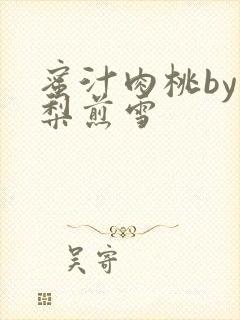 蜜汁肉桃by
梨煎雪
吴寄